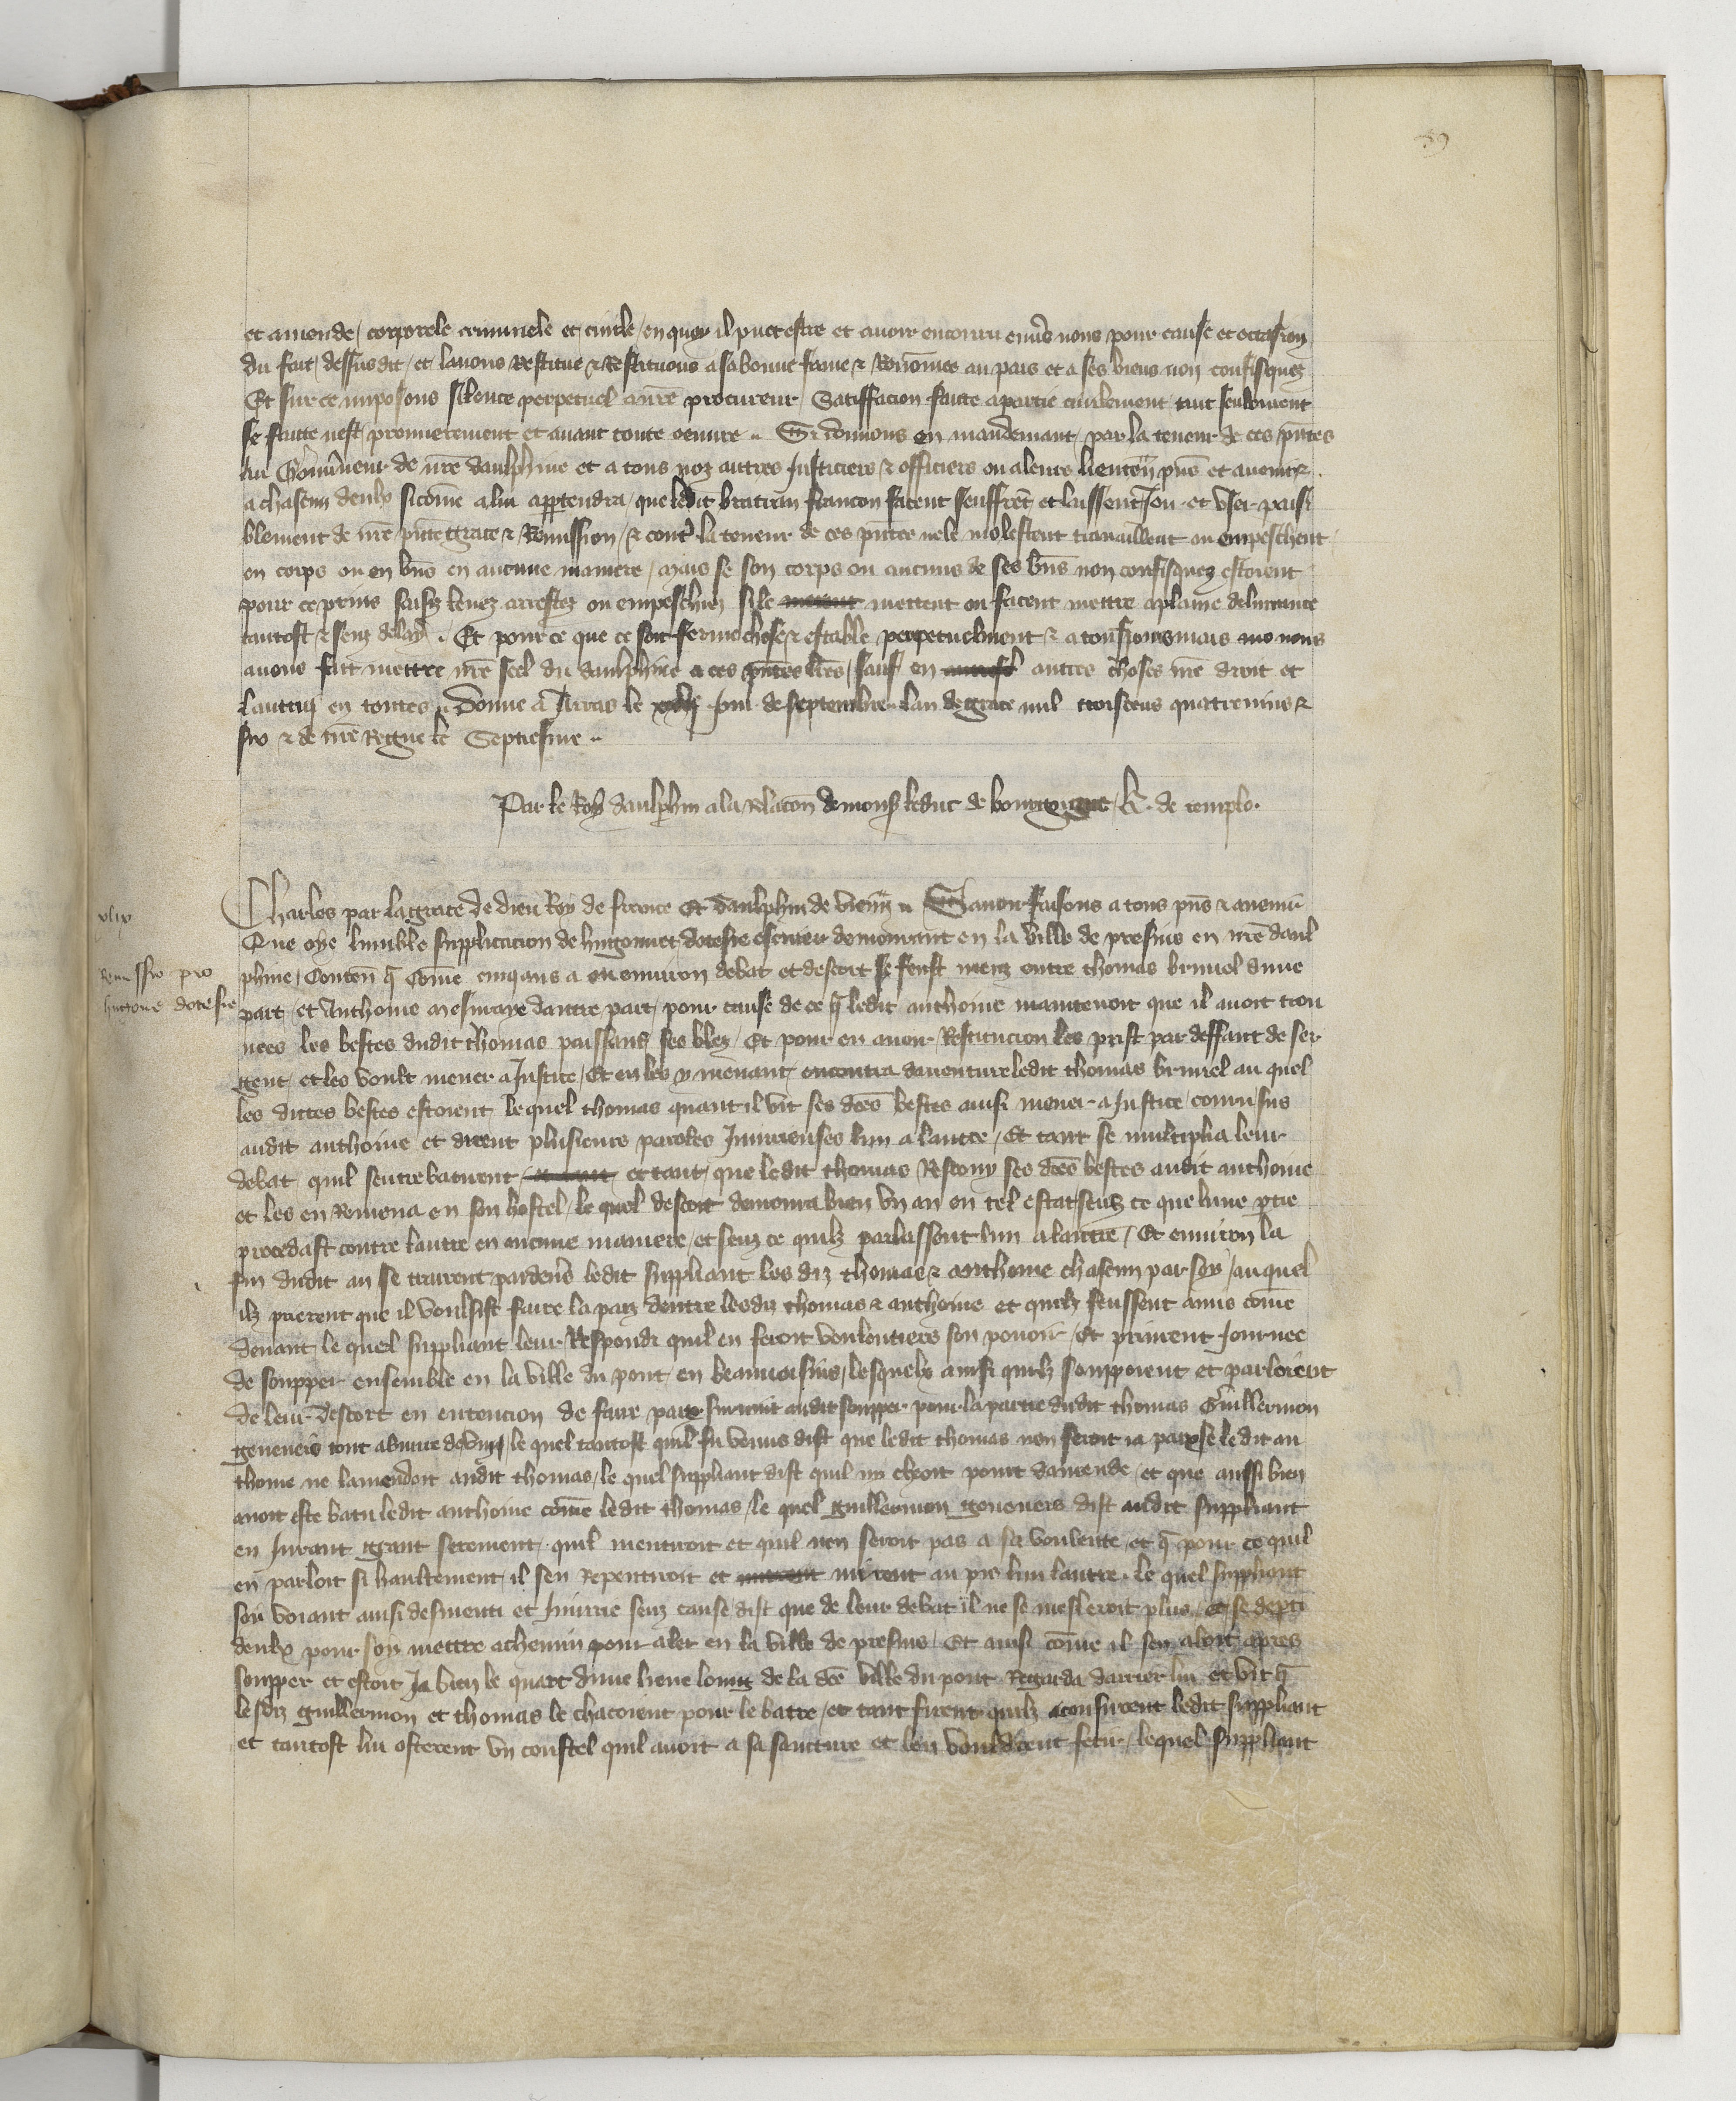 39
et amende corporele criminele et civile en quoy il puet estre et avoir encouru envers nous pour cause et occasion
du fait dessusdit et lavons restitue & restituons a sa bonne fame & renommee au pais et a ses biens non confisquez
Et sur ce imposons silence perpetuel a nre procureur Satisfacion faitte a partie civilement tant seulement
se faitte nest premierement et avant toute oeuvre .. Si donnons en mandemant par la teneur de ces pntes
au Gouvneur de nre daulphine et a tous noz autres Justiciers & officiers ou a leurs lieuten pns et avenir
a chascun deulx sicome a lui apptendra que ledit francon facent seuffret et laissent Joir et user paisi
blement de nre pnte grace & Remission & cont la teneur de ces pntes ne le molestent travaillent ou empeschent
en corps ou en bns en aucune maniere mais se son corps ou aucuns de ses bns non confisquez estoient
pour ce prins saisiz tenuz arrestez ou empeschiez si le mettent ou facent mettre a plaine delivrance
tantost & senz delay. Et pour ce que ce soit ferme chose & estable perpetuelment & a tousjoursmais nous
avons fait mettre nre scel du daulphine a ces pntes lres sauf en autres choses nre droit et
lautruy en toutes. Donne a Arras le Jour de Septembre lan de grace mil troiscens quatrevins &
six & de nre Regne le Septiesme ..
Par le Roy daulphin a la Relacon de mons le duc de bourgoigne . de templo.
xlix
Charles par la grace de dieu Roy de france Et daulphin de vienn .. Savoir faisons a tous pns & avenir
Que oye lumble supplicacion de hugonnet dotesie escuier demourant en la ville de presins en nre daul
Remissio pro
hugone dotesie
phine Conten q Come cinq ans a ou environ debat et descort se feust meuz entre thomas brunel dune
part et Anthoine dautre part pour cause de ce q ledit anthoine maintenoit que il avoit trou
vees les bestes dudit thomas paissans ses blez Et pour en avoir Restitucion les prist par deffaut de ser
gent et les voult mener a Justice Et en les y menant encontra daventure ledit thomas brunel au quel
les dittes bestes estoient lequel thomas quant il vit ses dces bestes ainsi mener a Justice couru sus
audit anthoine et dirent plusieurs paroles Injurieuses lun a lautre Et tant se multiplia leur
debat quil sentrebatirent et tant que ledit thomas Rescouy ses dces bestes audit anthoine
et les en Remena en son hostel le quel descort demoura bien un an en tel estat senz ce que lune ptie
procedast contre lautre en aucune maniere et senz ce quilz parlassent lun a lautre Et environ la
fin dudit an se trairent pardevs ledit suppliant les diz thomas & anthoine chascun par soy auquel
ilz prierent que il voulsist faire la paix dentre lesdiz thomas & anthoine et quilz feussent amis come
devant le quel suppliant leur Respondi quil en feroit voulentiers son povoir et prinrent Journee
de soupper ensemble en la ville du pont en beauvoisins lesquelx ainsi quilz souppoient et parloient
de leur descort en entencion de faire paix survint audit soupper pour la partie dudit thomas Guillermon
genevers le quel tantost quil fu venus dist que ledit thomas nen feroit ja paix se ledit an
thoine ne lamendoit audit thomas le quel suppliant dist quil ny cheoit point damende et que aussi bien
avoit este batu ledit anthoine come ledit thomas le quel guillermon genevers dist audit suppliant
en Jurant grant serement quil mentiroit et quil nen seroit pas a sa voulente et q pour ce quil
en parloit si haultement il sen repentiroit et au pis lun lautre. le quel suppliant
soy voiant ainsi desmenti et Injurie senz cause dist que de leur debat il ne se mesleroit plus et se depti
deulx pour soy mettre a chemin pour aler en la ville de presins Et ainsi come il sen aloit apres
soupper et estoit Ja bien le quart dune lieue loing de la dce ville du pont Regarda darrier lui et vit q
lesdiz guillermon et thomas le chacoient pour le batre et tant firent quilz aconsuirent ledit suppliant
et tantost lui osterent un coustel quil avoit a sa sainture et len vouldrent ferir lequel suppliant